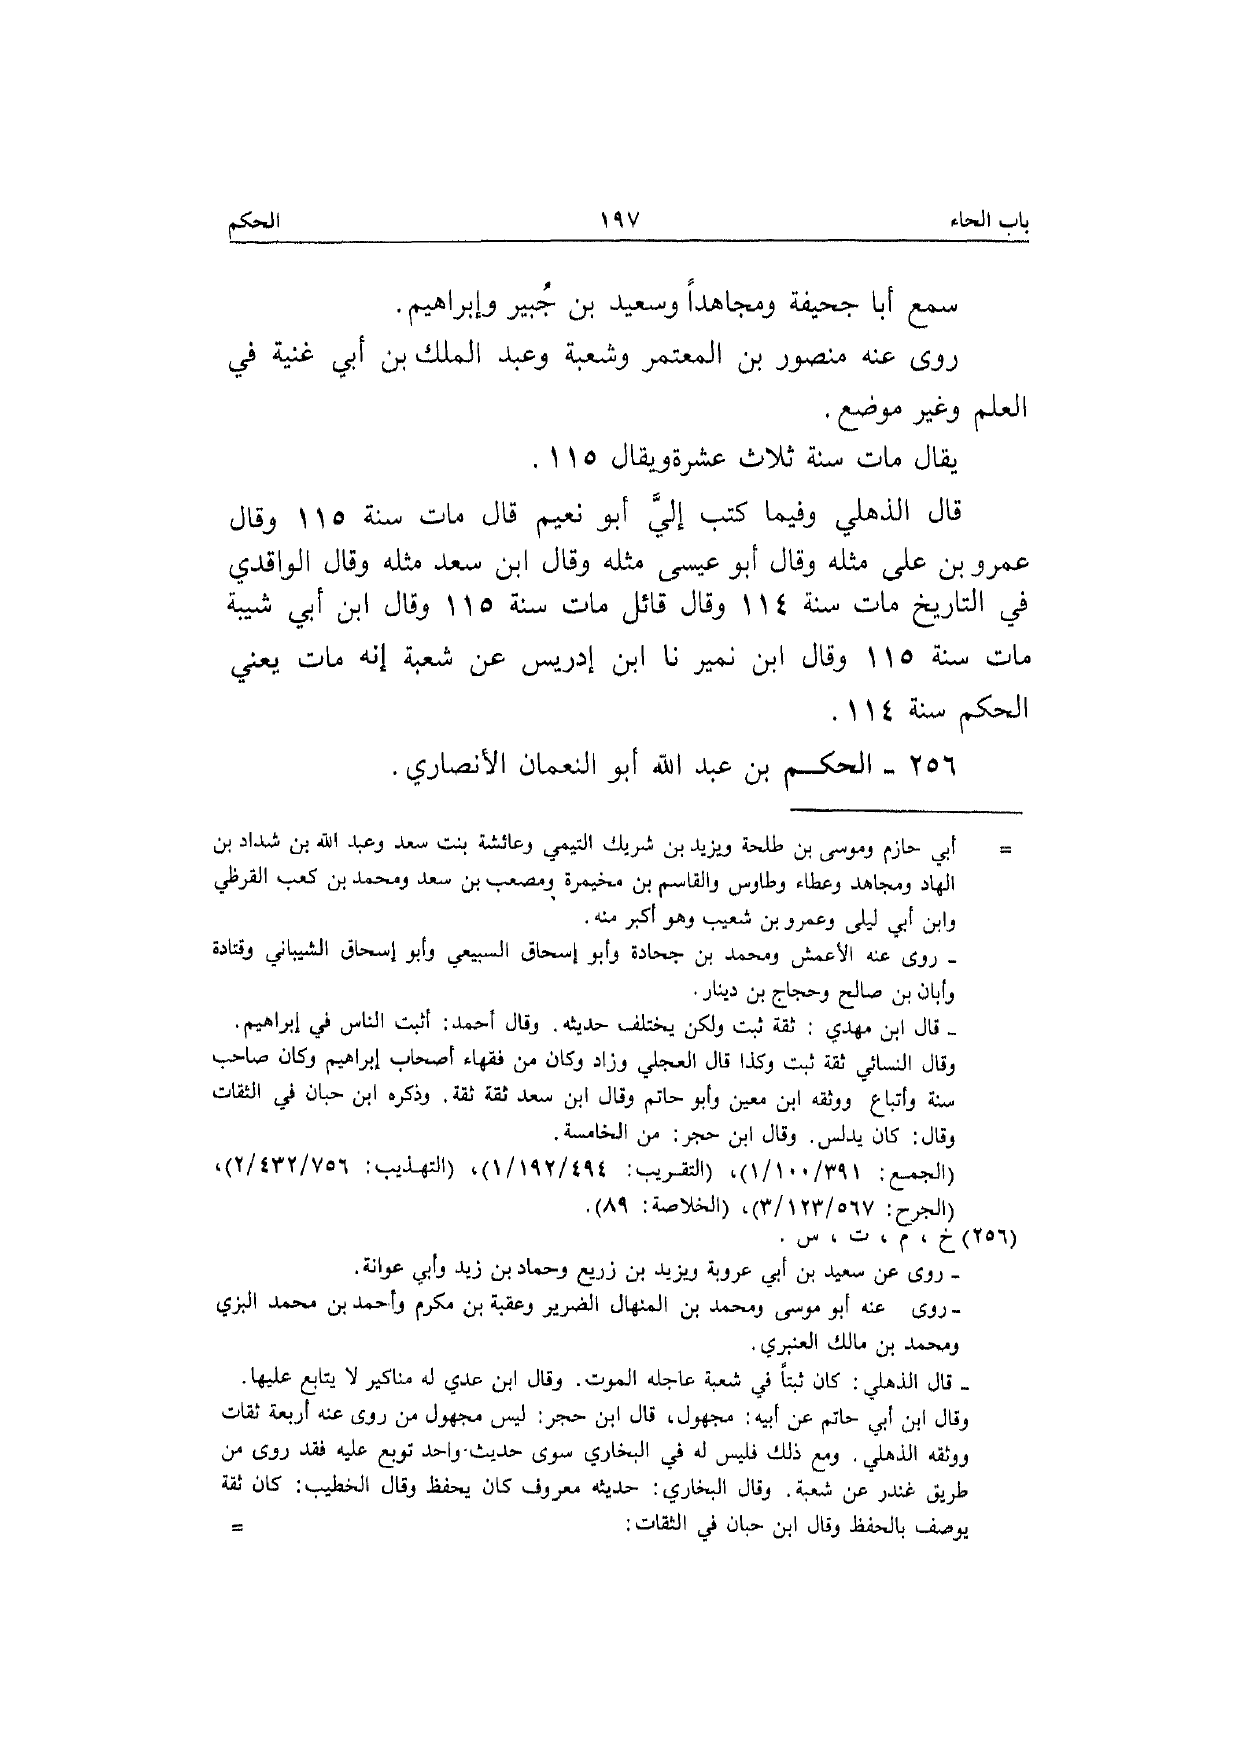 باب الحاء ١٩٧ الحكم
سمع أبا جحيفة ومجاهداً وسعيد بن جُبير وإبراهيم.
روى عنه منصور بن المعتمر وشعبة وعبد الملك بن أبي غنية في
العلم وغير موضع.
يقال مات سنة ثلاث عشرة ويقال ١١٥.
قال الذهلي وفيما كتب إليَّ أبو نعيم قال مات سنة ١١٥ وقال
عمرو بن على مثله وقال أبو عيسى مثله وقال ابن سعد مثله وقال الواقدي
في التاريخ مات سنة ١١٤ وقال قائل مات سنة ١١٥ وقال ابن أبي شيبة
مات سنة ١١٥ وقال ابن نمير نا ابن إدريس عن شعبة إنه مات يعني
الحكم سنة ١١٤.
٢٥٦ ـ الحكم بن عبد الله أبو النعمان الأنصاري.
= أبي حازم وموسى بن طلحة ويزيد بن شريك التيمي وعائشة بنت سعد وعبد الله بن شداد بن
الهاد ومجاهد وعطاء وطاوس والقاسم بن مخيمرة ومصعب بن سعد ومحمد بن كعب القرظي
وابن أبي ليلى وعمرو بن شعيب وهو أكبر منه.
ـ روى عنه الأعمش ومحمد بن جحادة وأبو إسحاق السبيعي وأبو إسحاق الشيباني وقتادة
وأبان بن صالح وحجاج بن دينار.
ـ قال ابن مهدي: ثقة ثبت ولكن يختلف حديثه. وقال أحمد: أثبت الناس في إبراهيم.
وقال النسائي ثقة ثبت وكذا قال العجلي وزاد وكان من فقهاء أصحاب إبراهيم وكان صاحب
سنة وأتباع ووثقه ابن معين وأبو حاتم وقال ابن سعد ثقة ثقة. وذكره ابن حبان في الثقات
وقال: كان يدلس. وقال ابن حجر: من الخامسة.
(الجمع: ١/١٠٠/٣٩١)، (التقريب: ١/١٩٢/٤٩٤)، (التهذيب: ٢/٤٣٢/٧٥٦)،
(الجرح: ٣/١٢٣/٥٦٧)، (الخلاصة: ٨٩).
(٢٥٦) خ، م، ت، س.
ـ روى عن سعيد بن أبي عروبة ويزيد بن زريع وحماد بن زيد وأبي عوانة.
ـ روى عنه أبو موسى ومحمد بن المنهال الضرير وعقبة بن مكرم وأحمد بن محمد البزي
ومحمد بن مالك العنبري.
ـ قال الذهلي: كان ثبتاً في شعبة عاجله الموت. وقال ابن عدي له مناكير لا يتابع عليها.
وقال ابن أبي حاتم عن أبيه: مجهول، قال ابن حجر: ليس مجهول من روى عنه أربعة ثقات
ووثقه الذهلي. ومع ذلك فليس له في البخاري سوى حديث واحد توبع عليه فقد روى من
طريق غندر عن شعبة. وقال البخاري: حديثه معروف كان يحفظ وقال الخطيب: كان ثقة
يوصف بالحفظ وقال ابن حبان في الثقات: =